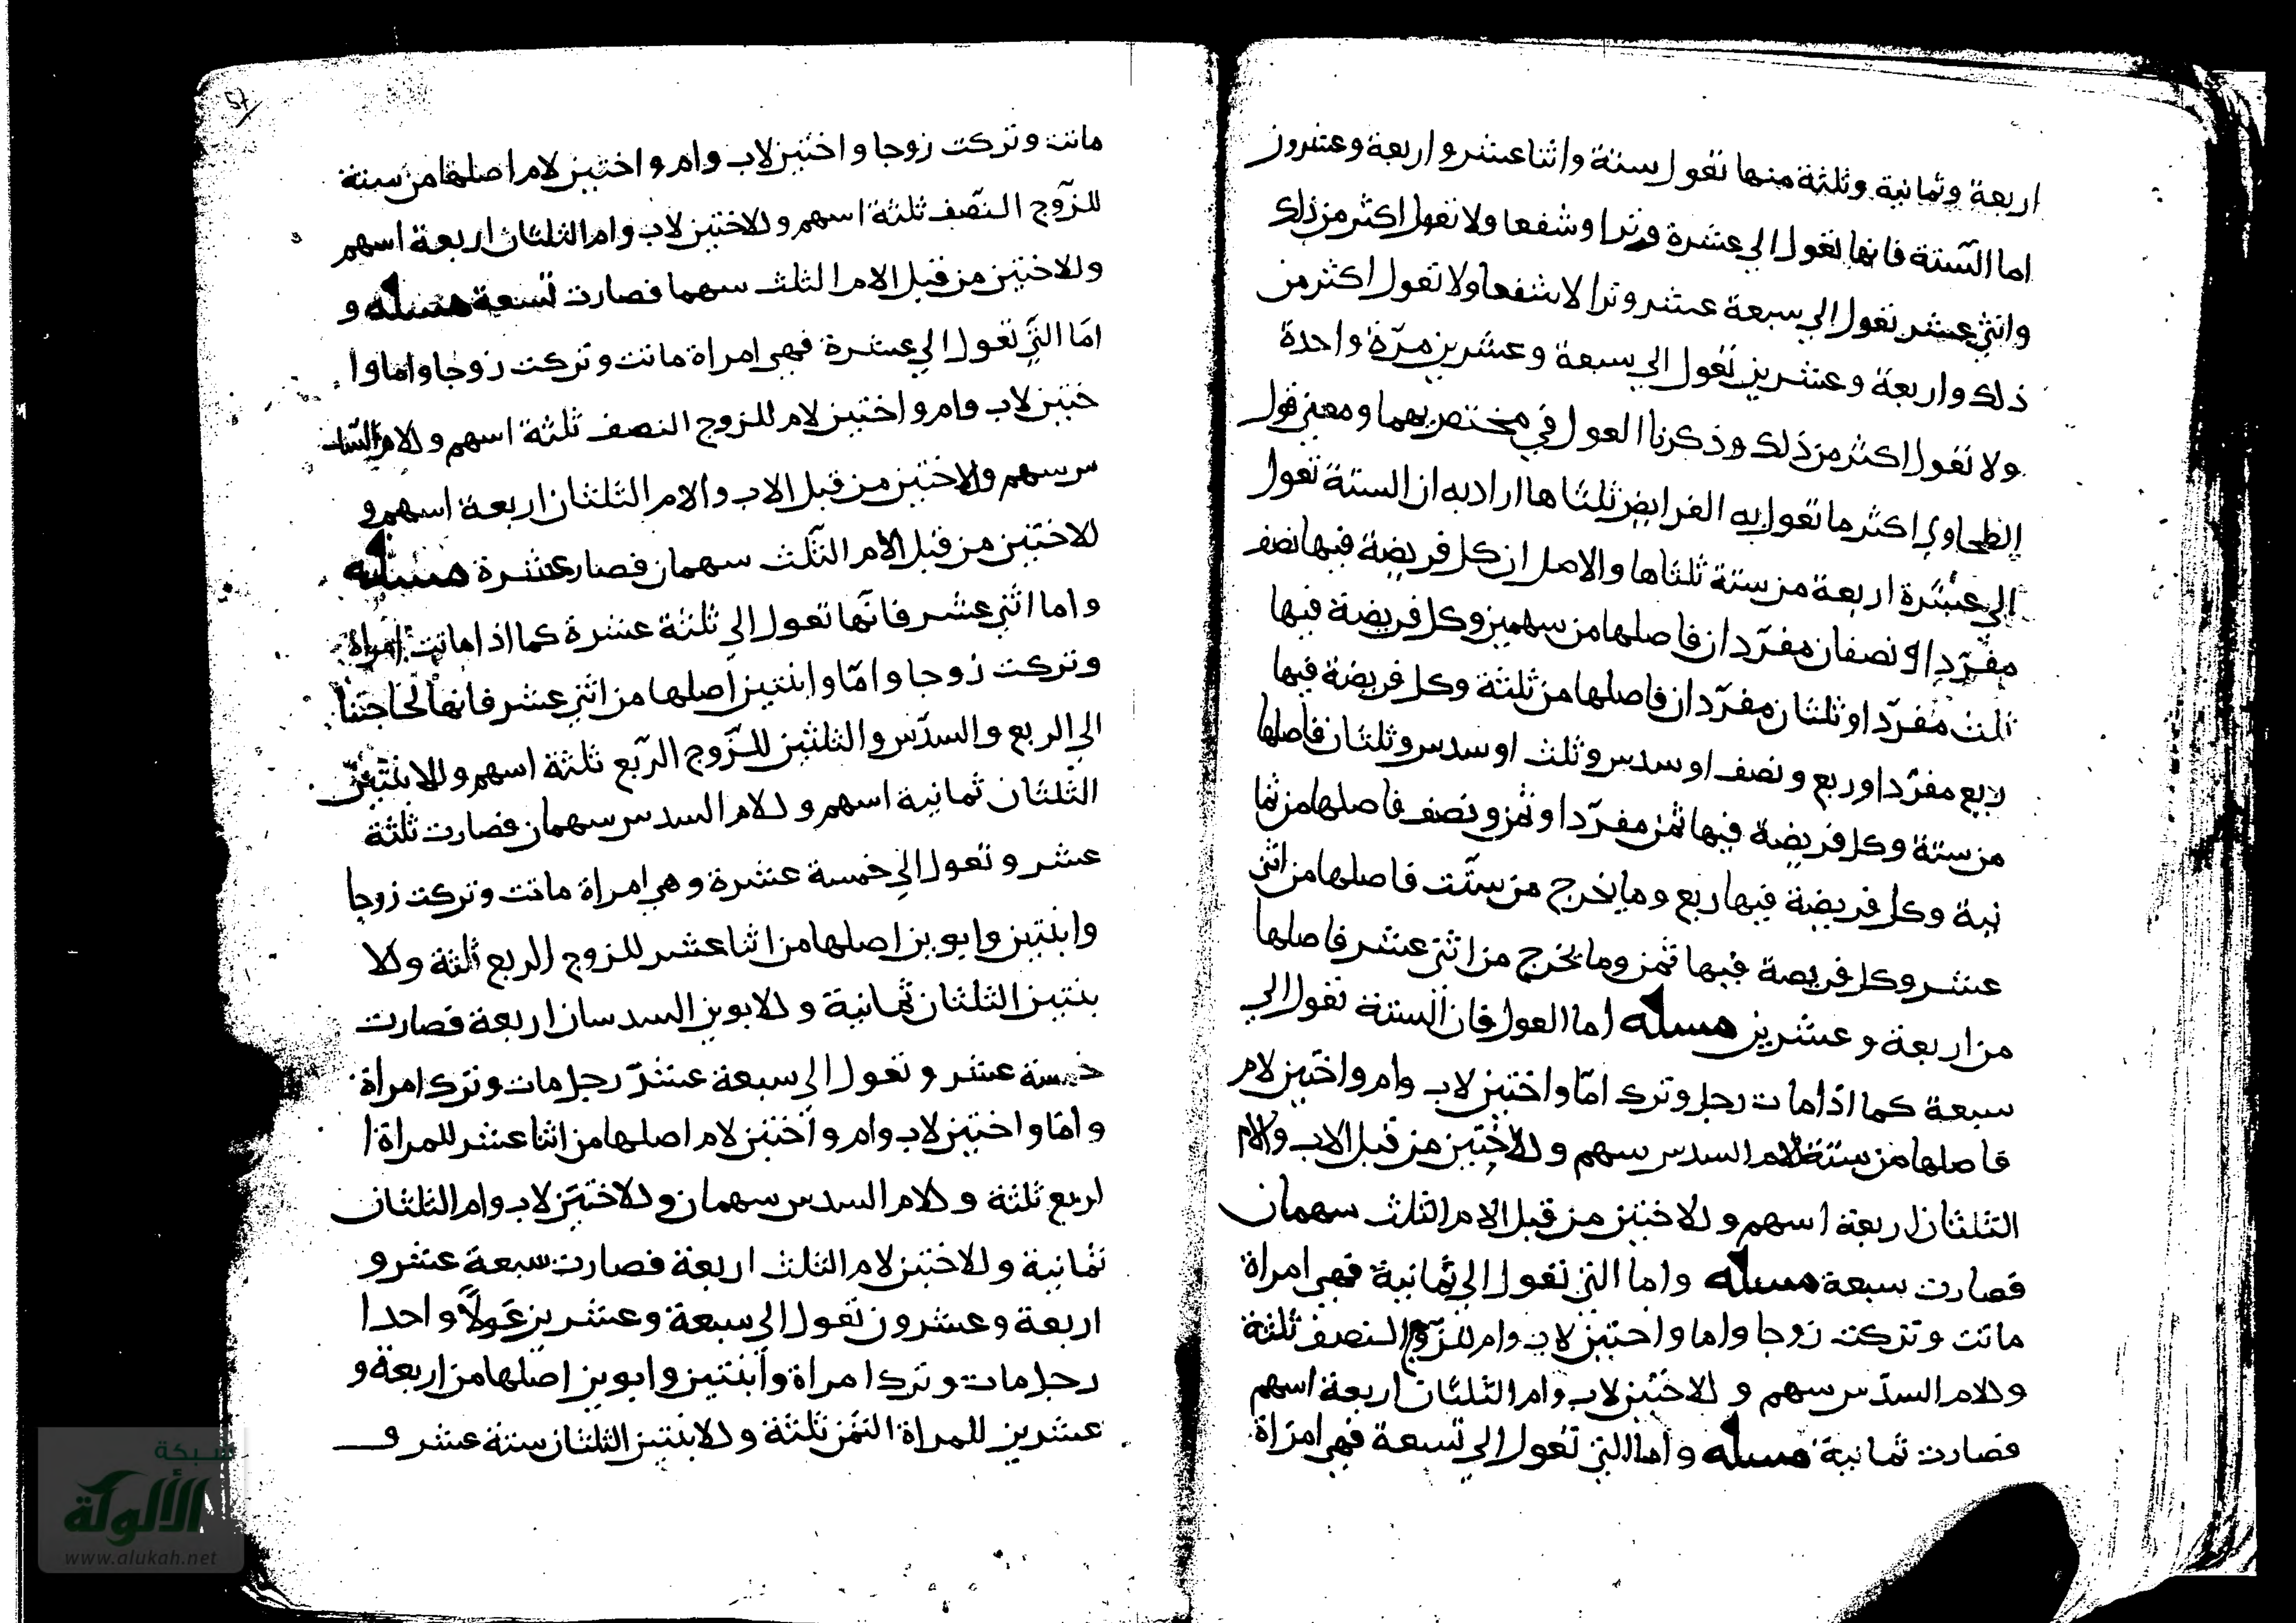 اربعة وثمانية وثلثة منها تعول ستة واثنا عشر واربعة وعشرون
اما الستة فانها تعول الي عشرة وترا وشفعا ولا تعول اكثر من ذلك
واثني عشر تعول الي سبعة عشر وترا لا شفعا ولا تعول اكثر من
ذلك واربعة وعشرين تعول الي سبعة وعشرين مرة واحدة
ولا تعول اكثر من ذلك وذكرنا العول في مختصريهما ومعني قول
الطحاوي اكثر ما تعول به الفرايض ثلثاها اراد به ان الستة تعول
الي عشرة اربعة من ستة ثلثاها والاصل ان كل فريضة فيها نصف
مفردا او نصفان مفردان فاصلها من سهمين وكل فريضة فيها
ثلث مفردا او ثلثان مفردان فاصلها من ثلثة وكل فريضة فيها
ربع مفردا وربع ونصف او سدس وثلث او سدس وثلثان فاصلها
من ستة وكل فريضة فيها ثمن مفردا او ثمن ونصف فاصلها من ثما
نية وكل فريضة فيها ربع وما يخرج من ستت فاصلها من اثني
عشر وكل فريضة فيها ثمن وما يخرج من اثني عشر فاصلها
من اربعة وعشرين مسله اما العول فان الستة تعول الي
سبعة كما اذا مات رجل وترك اما واختين لاب وام واختين لام
فاصلها من ستة للام السدس سهم وللاختين من قبل الاب والام
الثلثان اربعة اسهم وللاختين من قبل الام الثلث سهمان
فصارت سبعة مسله واما التي تعول الي ثمانية فهي امراة
ماتت وتركت زوجا واما واختين لاب وام للزوج النصف ثلثة
وللام السدس سهم وللاختين لاب وام الثلثان اربعة اسهم
فصارت ثمانية مسله واما التي تعول الي تسعة فهي امراة
ماتت وتركت زوجا واختين لاب وام واختين لام اصلها من ستة
للزوج النصف ثلثة اسهم وللاختين لاب وام الثلثان اربعة اسهم
وللاختين من قبل الام الثلث سهما فصارت تسعة مسله و
اما التي تعول الي عشرة فهي امراة ماتت وتركت زوجا واما وا
ختين لاب وام واختين لام للزوج النصف ثلثة اسهم وللام السد
س سهم وللاختين من قبل الاب والام الثلثان اربعة اسهم و
للاختين من قبل الام الثلث سهمان فصار عشرة مسله
واما اثني عشر فانها تعول الي ثلثة عشرة كما اذا ماتت امراة
وتركت زوجا واما وابنتين اصلها من اثني عشر فانها لحاجتنا
الي الربع والسدس والثلثين للزوج الربع ثلثة اسهم وللابنتين
الثلثان ثمانية اسهم وللام السدس سهمان فصارت ثلثة
عشر وتعول الي خمسة عشرة وهي امراة ماتت وتركت زوجا
وابنتين وابوين اصلها من اثنا عشر للزوج الربع ثلثة وللا
بنتين الثلثان ثمانية وللابوين السدسان اربعة فصارت
خمسة عشر وتعول الي سبعة عشر رجل مات وترك امراة
واما واختين لاب وام واختين لام اصلها من اثنا عشر للمراة ا
لربع ثلثة وللام السدس سهمان وللاختين لاب وام الثلثان
ثمانية وللاختين لام الثلث اربعة فصارت سبعة عشر و
اربعة وعشرون تعول الي سبعة وعشرين عولا واحدا
رجل مات وترك امراة وابنتين وابوين اصلها من اربعة و
عشرين للمراة الثمن ثلثة وللابنتين الثلثان ستة عشر و
شبكة
الألوكة
www.alukah.net